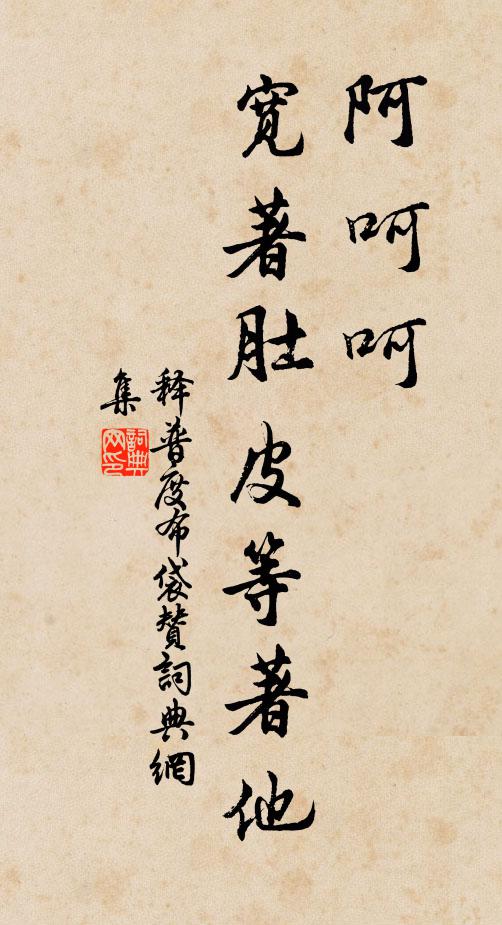 阿呵呵
寬著肚皮等著他
释普度布袋赞詞典網
集
詞典
网印